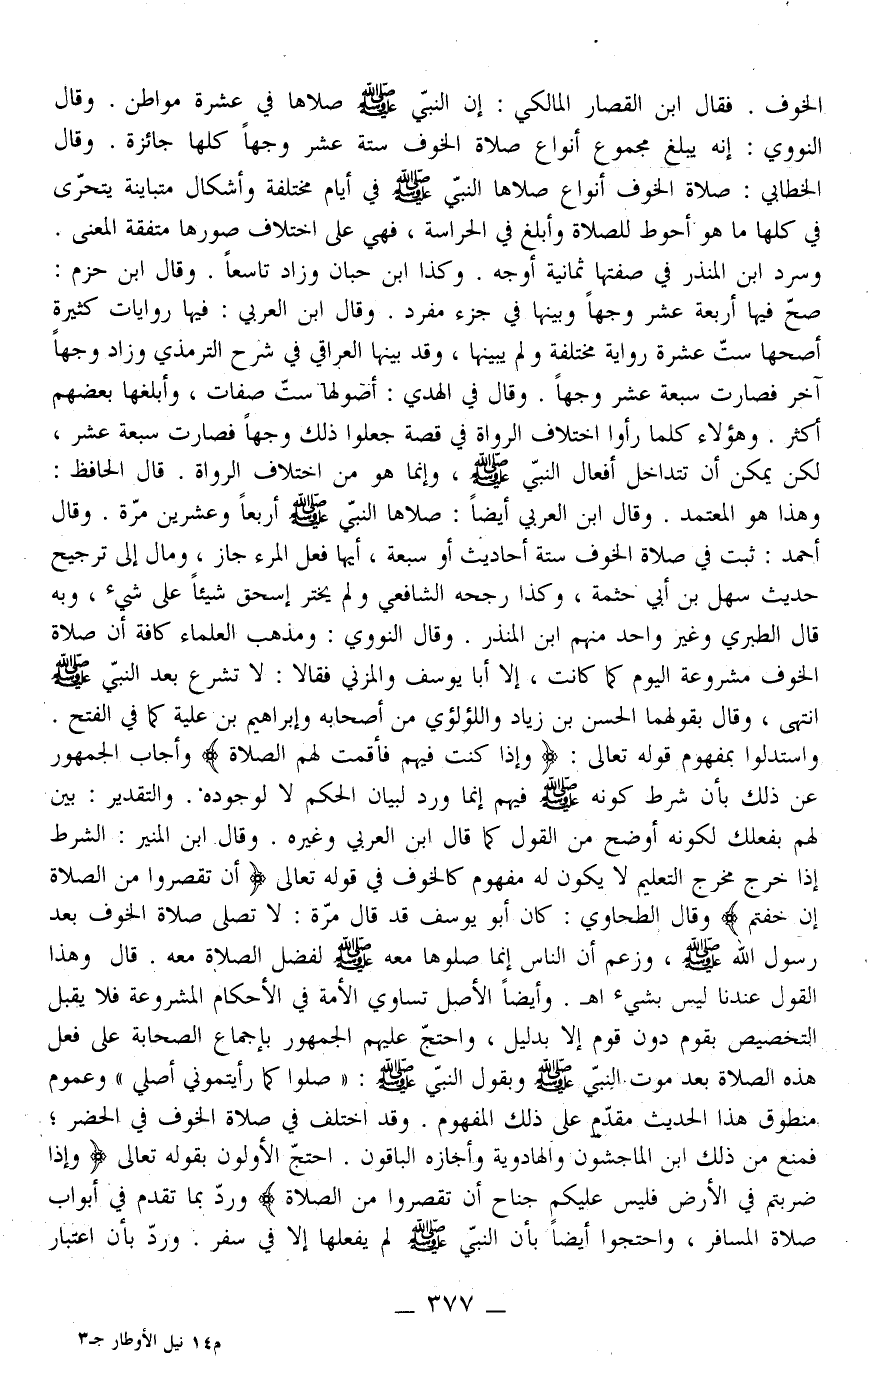 الخوف . فقال ابن القصار المالكي : إن النبيّ ﷺ صلاها في عشرة مواطن . وقال
النووي : إنه يبلغ مجموع أنواع صلاة الخوف ستة عشر وجهاً كلها جائزة . وقال
الخطابي : صلاة الخوف أنواع صلاها النبيّ ﷺ في أيام مختلفة وأشكال متباينة يتحرّى
في كلها ما هو أحوط للصلاة وأبلغ في الحراسة ، فهي على اختلاف صورها متفقة المعنى .
وسرد ابن المنذر في صفتها ثمانية أوجه . وكذا ابن حبان وزاد تاسعاً . وقال ابن حزم :
صحّ فيها أربعة عشر وجهاً وبينها في جزء مفرد . وقال ابن العربي : فيها روايات كثيرة
أصحها ستّ عشرة رواية مختلفة ولم يبينها ، وقد بينها العراقي في شرح الترمذي وزاد وجهاً
آخر فصارت سبعة عشر وجهاً . وقال في الهدي : أصولها ستّ صفات ، وأبلغها بعضهم
أكثر . وهؤلاء كلما رأوا اختلاف الرواة في قصة جعلوا ذلك وجهاً فصارت سبعة عشر ،
لكن يمكن أن تتداخل أفعال النبيّ ﷺ ، وإنما هو من اختلاف الرواة . قال الحافظ :
وهذا هو المعتمد . وقال ابن العربي أيضاً : صلاها النبيّ ﷺ أربعاً وعشرين مرّة . وقال
أحمد : ثبت في صلاة الخوف ستة أحاديث أو سبعة ، أيها فعل المرء جاز ، ومال إلى ترجيح
حديث سهل بن أبي حثمة ، وكذا رجحه الشافعي ولم يختر إسحق شيئاً على شيء ، وبه
قال الطبري وغير واحد منهم ابن المنذر . وقال النووي : ومذهب العلماء كافة أن صلاة
الخوف مشروعة اليوم كما كانت ، إلا أبا يوسف والمزني فقالا : لا تشرع بعد النبيّ ﷺ
انتهى ، وقال بقولهما الحسن بن زياد واللؤلؤي من أصحابه وإبراهيم بن علية كما في الفتح .
واستدلوا بمفهوم قوله تعالى : ﴿ وإذا كنت فيهم فأقمت لهم الصلاة ﴾ وأجاب الجمهور
عن ذلك بأن شرط كونه ﷺ فيهم إنما ورد لبيان الحكم لا لوجوده . والتقدير : بين
لهم بفعلك لكونه أوضح من القول كما قال ابن العربي وغيره . وقال ابن المنير : الشرط
إذا خرج مخرج التعليم لا يكون له مفهوم كالخوف في قوله تعالى ﴿ أن تقصروا من الصلاة
إن خفتم ﴾ وقال الطحاوي : كان أبو يوسف قد قال مرّة : لا تصلى صلاة الخوف بعد
رسول الله ﷺ ، وزعم أن الناس إنما صلوها معه ﷺ لفضل الصلاة معه . قال وهذا
القول عندنا ليس بشيء اهـ . وأيضاً الأصل تساوي الأمة في الأحكام المشروعة فلا يقبل
التخصيص بقوم دون قوم إلا بدليل ، واحتجّ عليهم الجمهور بإجماع الصحابة على فعل
هذه الصلاة بعد موت النبيّ ﷺ وبقول النبيّ ﷺ : « صلوا كما رأيتموني أصلي » وعموم
منطوق هذا الحديث مقدّم على ذلك المفهوم . وقد اختلف في صلاة الخوف في الحضر ؛
فمنع من ذلك ابن الماجشون والهادوية وأجازه الباقون . احتجّ الأولون بقوله تعالى ﴿ وإذا
ضربتم في الأرض فليس عليكم جناح أن تقصروا من الصلاة ﴾ وردّ بما تقدم في أبواب
صلاة المسافر ، واحتجوا أيضاً بأن النبيّ ﷺ لم يفعلها إلا في سفر . وردّ بأن اعتبار
ـ ٣٧٧ ـ
م١٤ نيل الأوطار جـ٣